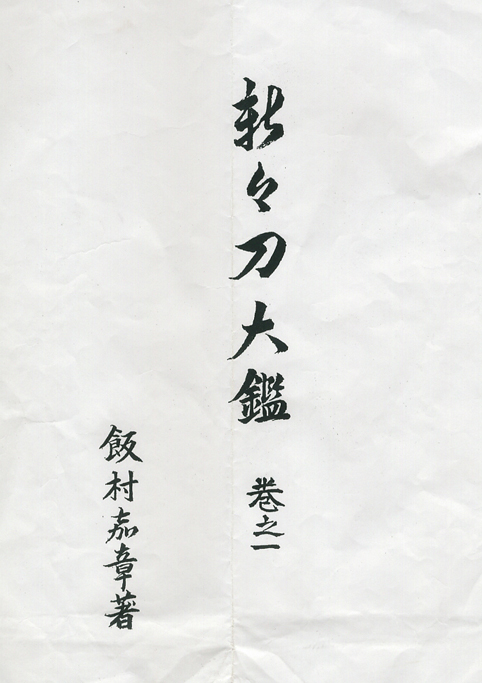 新々刀大鑑 巻之一
飯村嘉章著